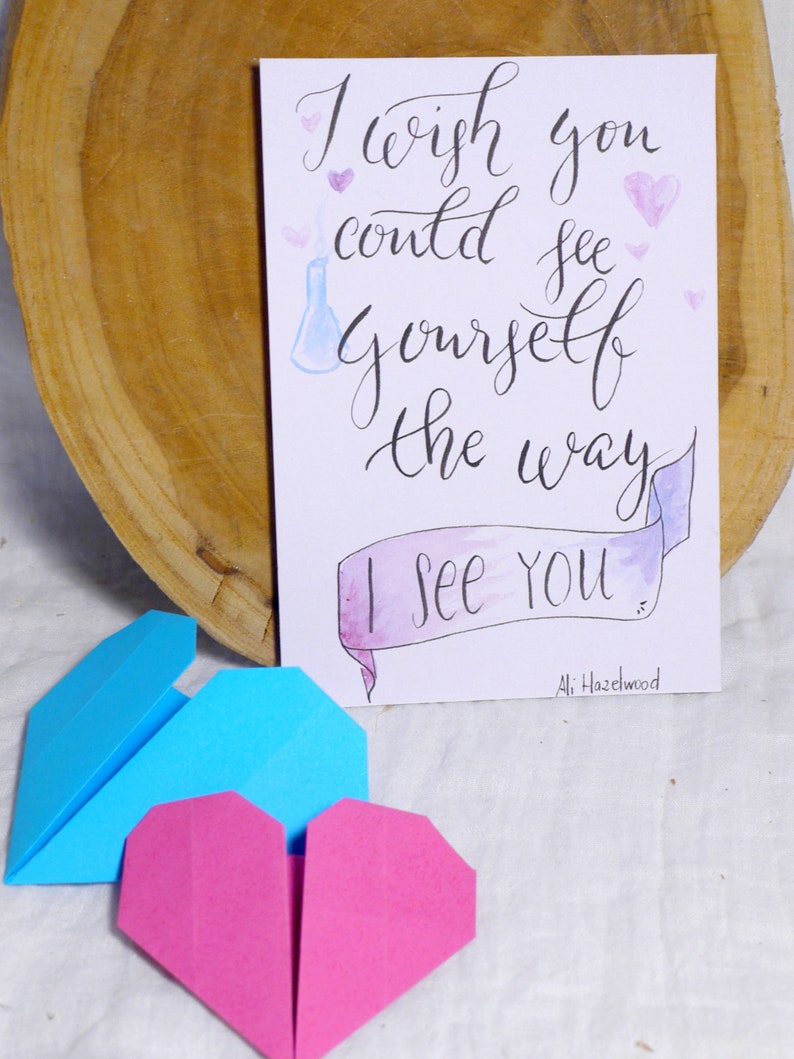 I wish you
could see
yourself
the way
I SEE YOU
Ali Hazelwood